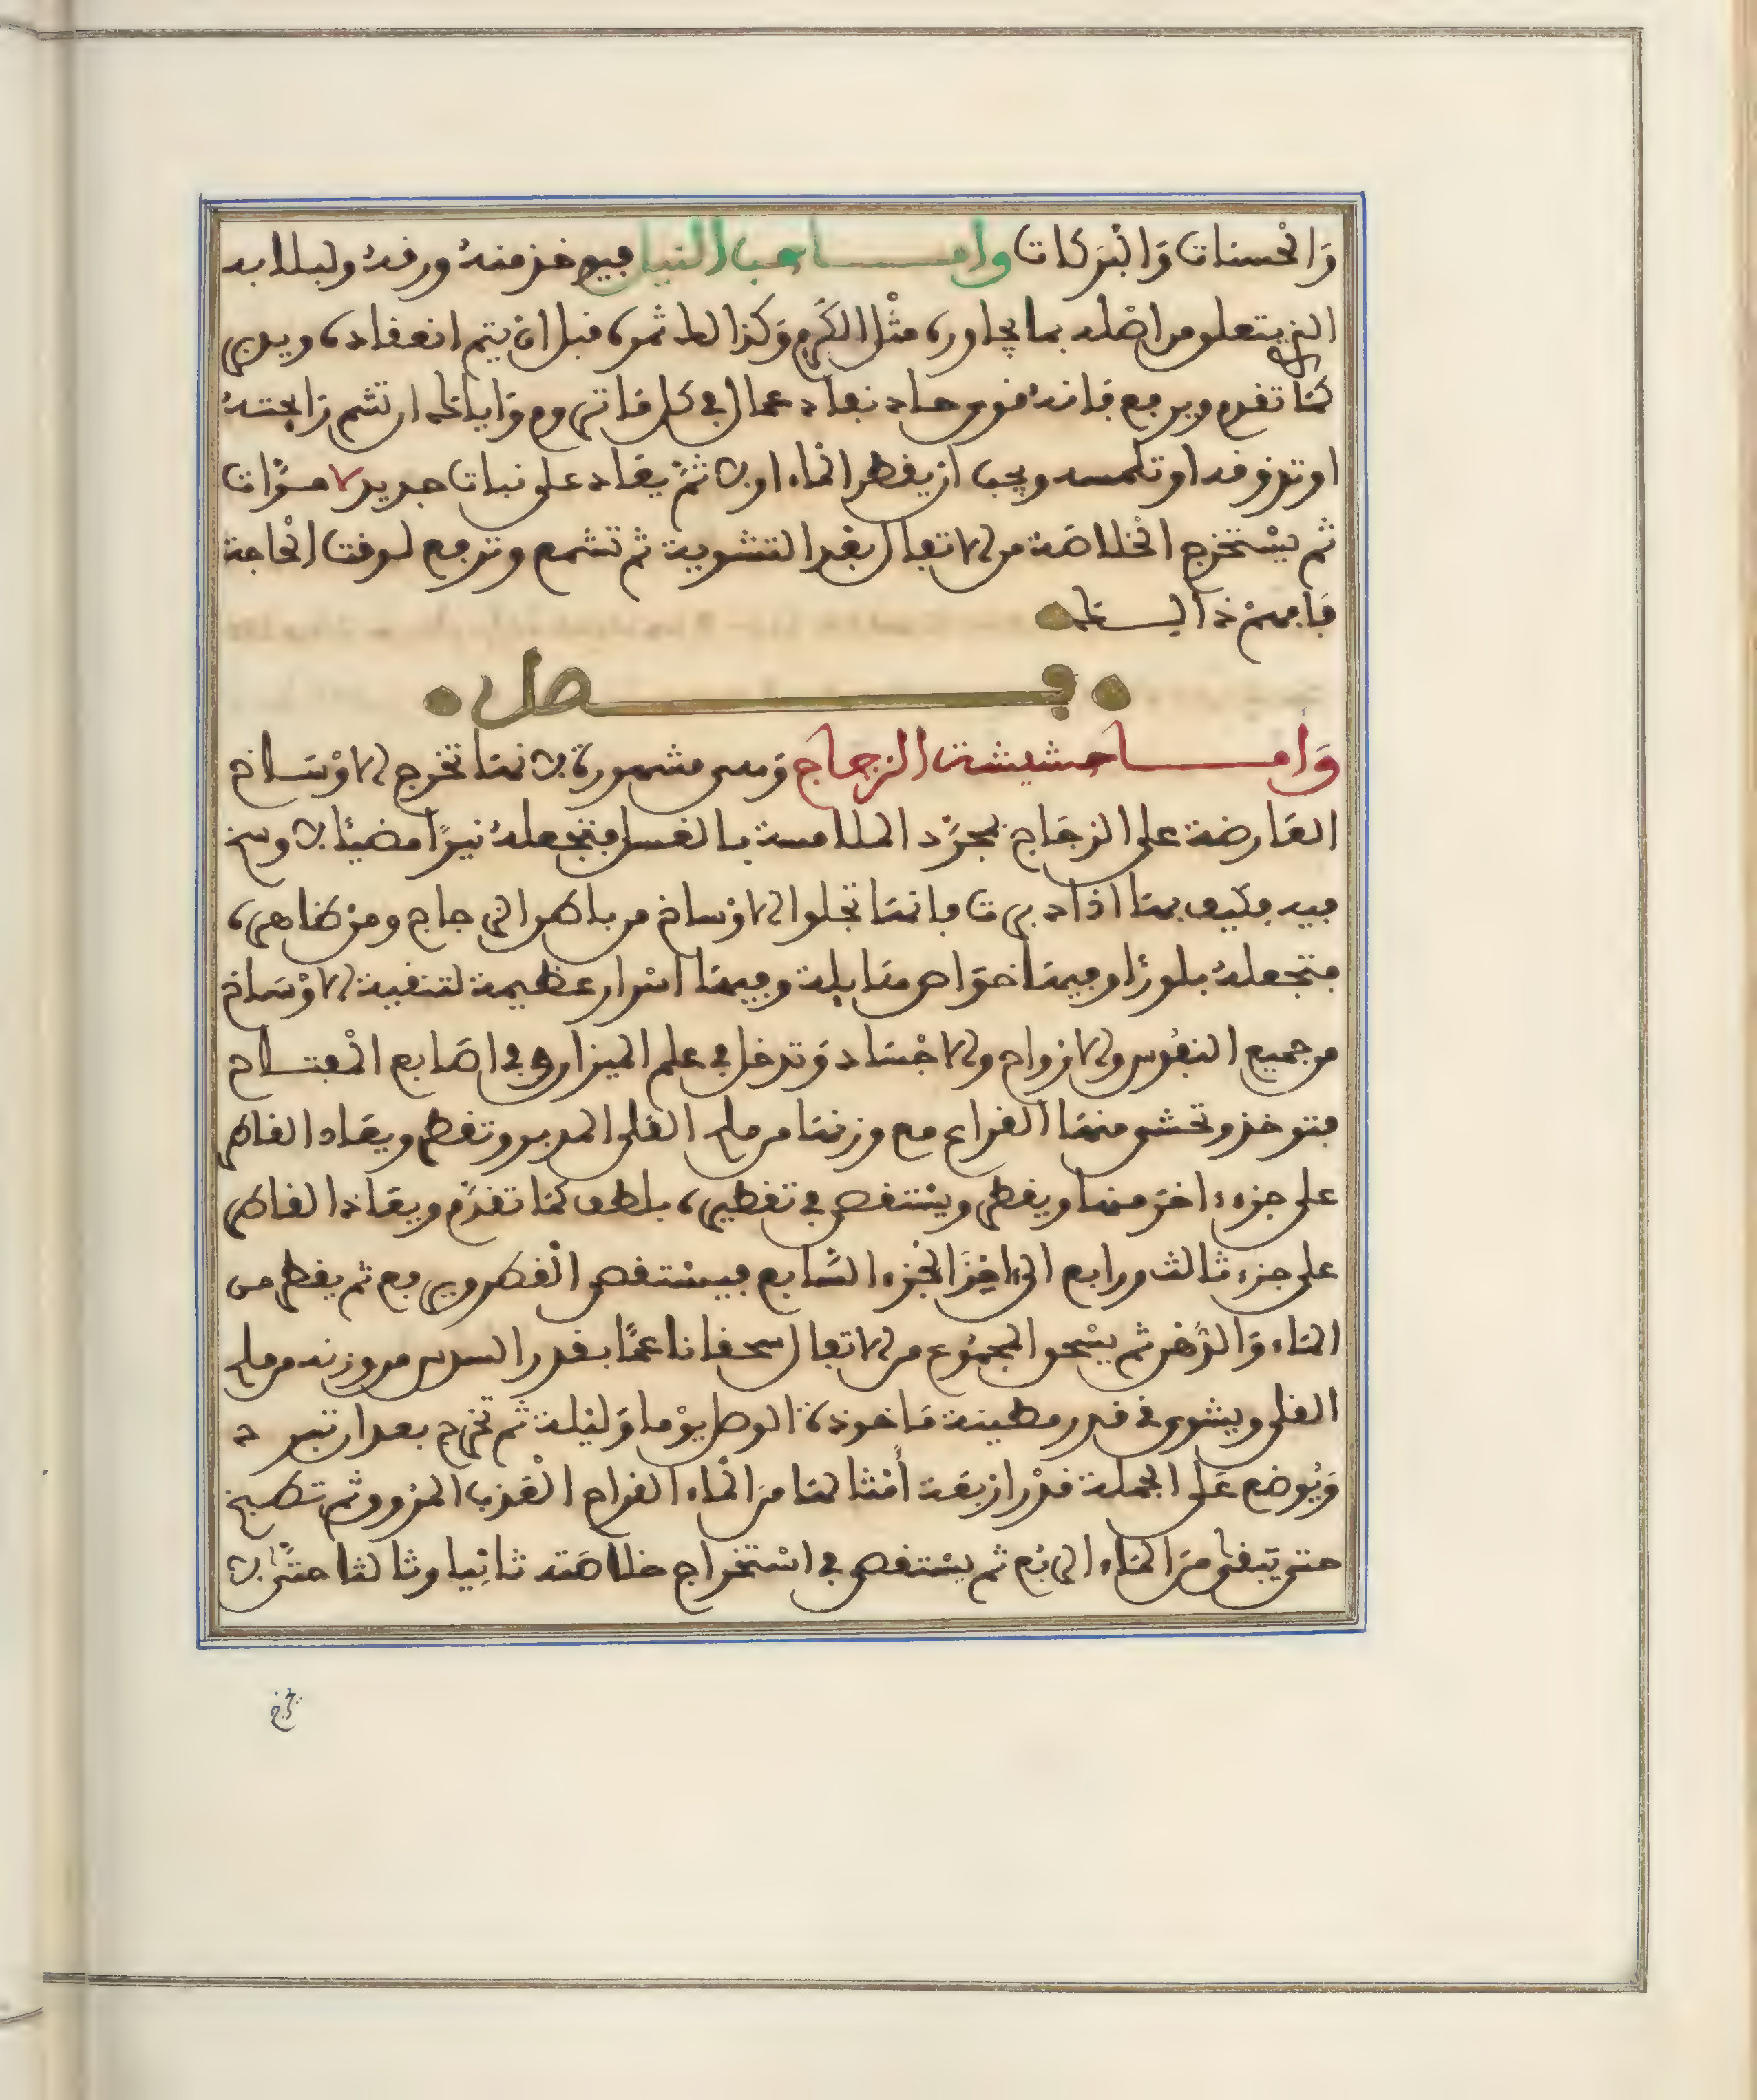 وَالحسنات وَالبَرَكات وامـــا حب النيل فيوخذ منهُ ورقهُ ولبلابه
الذي يتعلق من اصْله بما يجاوره مثْل الكَرْم وَكذالك ثمره قبل انْ يتم انعقاده ويدبر
كمَا تقدم ويرفع فَانهُ قوي حاد نفاد عمال في كل قاتر وم وَاياك ان تشم رَايحتهُ
او تذوقه او تلمسه ويجب ان يقطر المْاء اولا ثمّ يعَاد على نبات جديد لا مرَّات
ثم يسْتخرج الخْلاصَة من الاتفال بعْد التشوية ثم تشمع وترفع لوقت الحْاجة
فَافهمْ ذالـــك
فـــصل
وَامـــا حشيشة الزجاج وَهى مشهورة لانهَا تخرج الاوْسَـاخ
العَارضة على الزجَاج بمجرَّد الملامسة بالغسل فتجعلهُ نيرًا مضيئا لا وسخ
فيه فكيف بهَا اذا دبرت فانهَا تجلوا الاوْساخ من باطن الزجاج ومنْ ظاهره
فتجعلهُ بلورًا وفيهَا خوَاص هَايلة وفيهَا اسْرار عظيمة لتنقية الاوْسَاخ
من جميع النفُوس والارواح والاجْسَاد وَتدخل في علم الميزان وفي اصَابع المْفتـاح
فتوخذ وتحشى منهَا القراع مع وزنهَا من ملح القلى المدبر وتقطر ويعَاد القاطر
على جزء اخرَ منهَا ويقطر ويسْتقصى في تقطيره بلطف كمَا تقدَّم ويعَاد القاطر
على جزء ثالث ورابع الى اخِرَ الجْزء السَّابع فيسْتقصى الْقطر ويرفع ثم يقطر من
المَاء وَالدُّهْن ثم يسْحق المجمُوع من الاتفال سحقا ناعمًا بقدر السدس من وزنه من ملح
القلى ويشوى في قدر مطينة مَاخوذة الوصل يوْما وَليْلة ثم تخرج بعد ان تبرد
وَيُوضع عَلى الجملة قدْر ارْبعَة أمْثالهَا مِنَ المْاء القراح الْعَذب المرَوق ثم تطبخ
حتى يَبقى مِنَ المَاء الربُع ثم يسْتقصى في اسْتخراج خلاصَته ثانِيا وثالثا حتَّى لا
يخرج